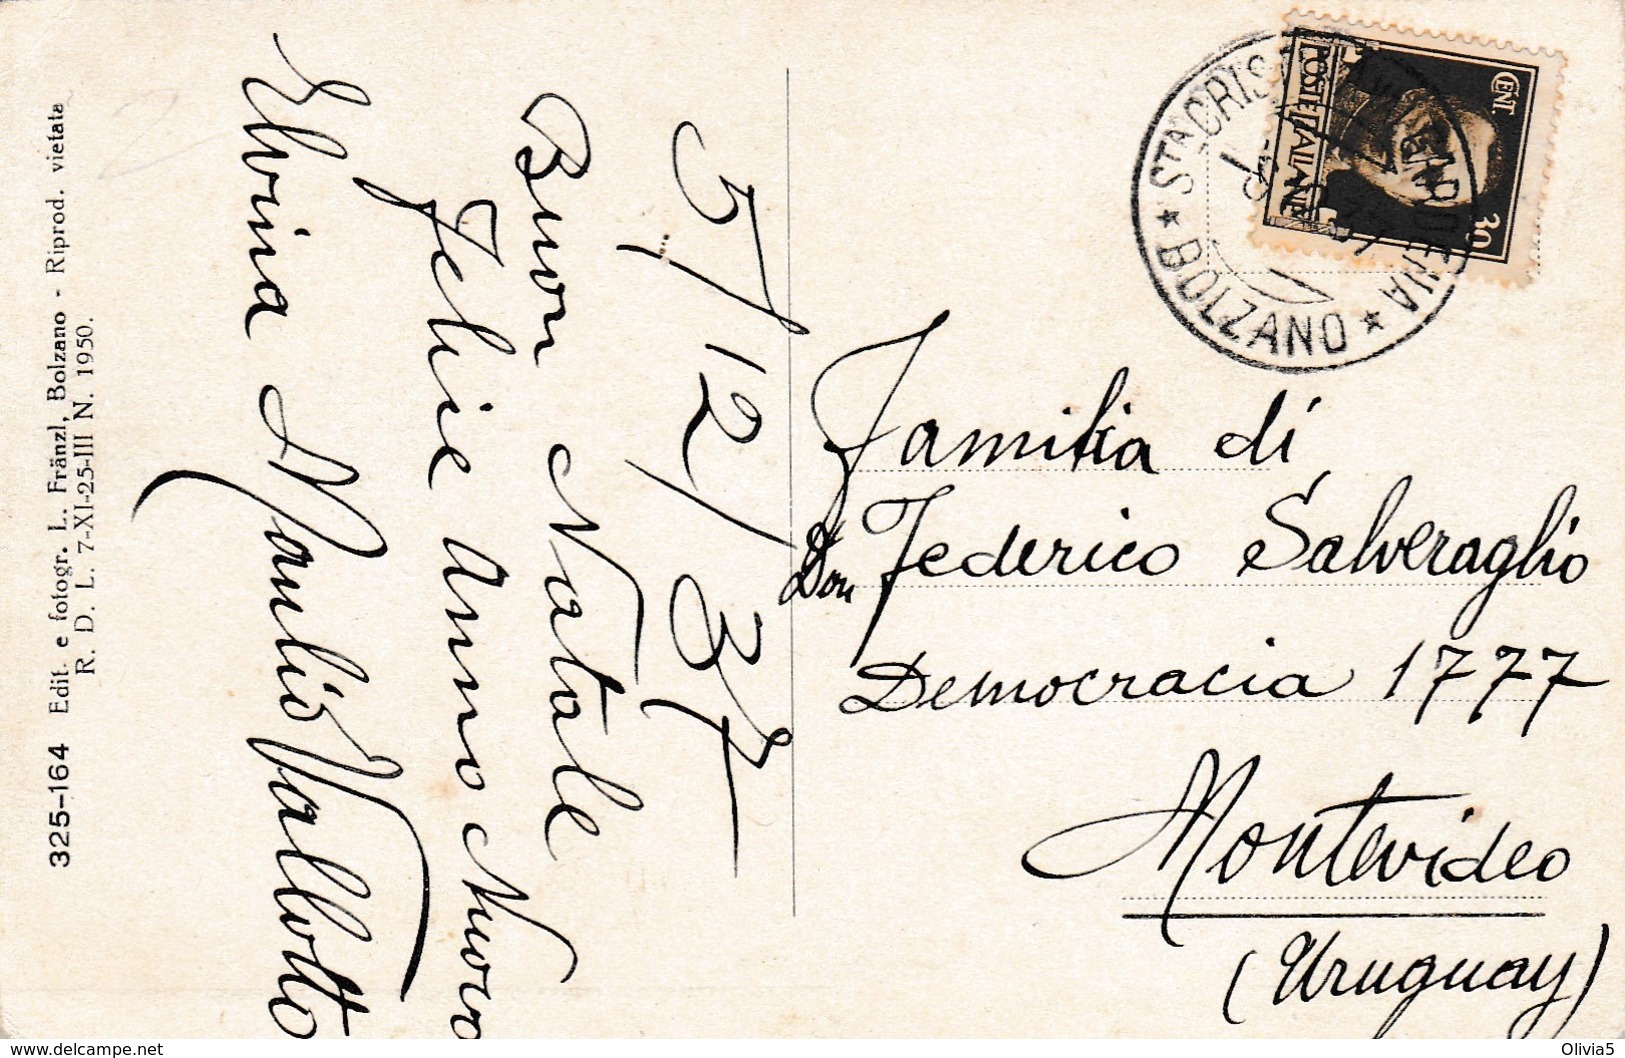 325-164 Edit. e fotogr. L. Fränzl, Bolzano - Riprod. vietata
R. D. L. 7-XI-25-III N. 1950.
5/12/37
Buon Natale
Felice anno Nuovo
Elvina Manlio Vallotto
CENT
30
POSTE ITALIANE
STA CRISTINA
GARDENA
★ BOLZANO ★
Familia di
Don Federico Salveraglio
Democracia 1777
Montevideo
(Uruguay)
www.delcampe.net
Olivia5